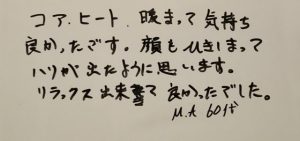 コア.ヒート.暖まって気持ち
良かったです。顔もひきしまって
ハリが出たように思います。
リラックス出来て良かったでした。
M.A 60代